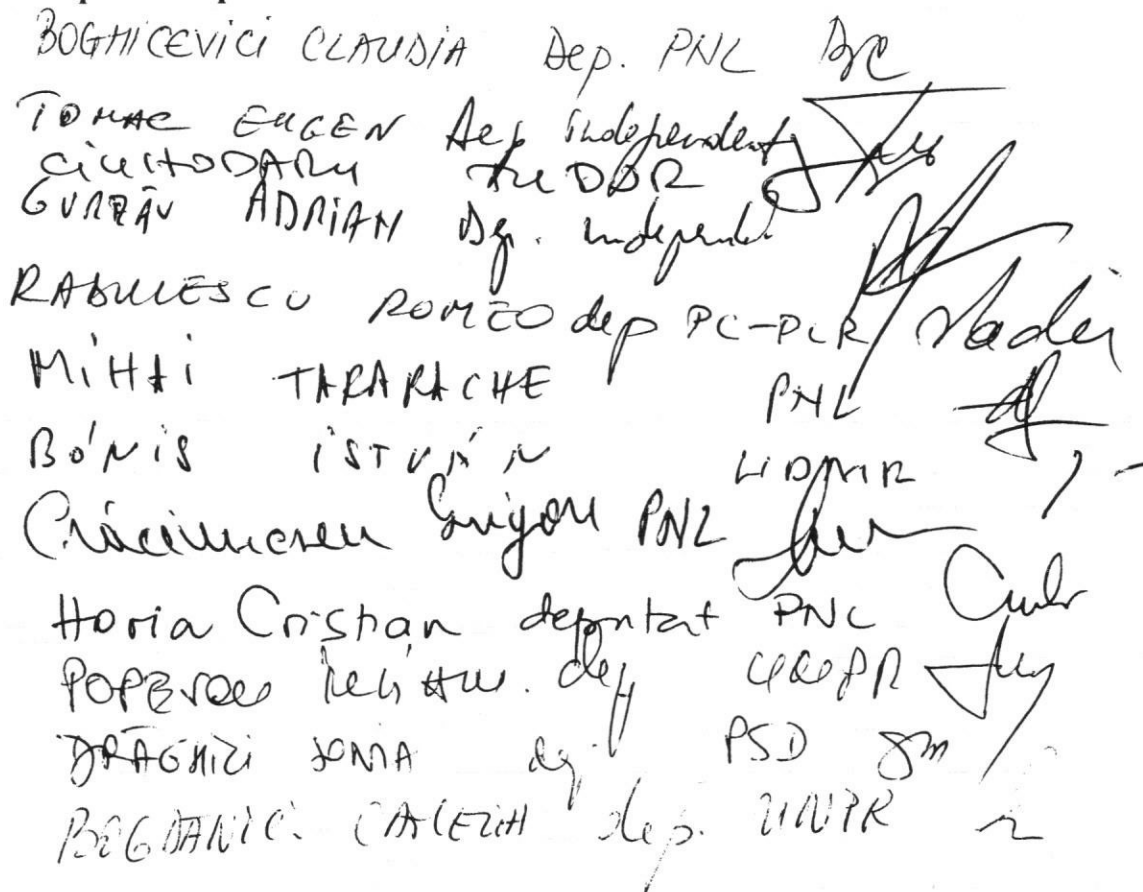 BOGHICEVICI CLAUDIA Dep. PNL
TOMAC EUGEN Dep independent
CIUHODARU TUDOR
GURZĂU ADRIAN Dep. independent
RADULESCU ROMEO dep PC-PLR
MIHAI TARARACHE PNL
BÓNIS ISTVÁN UDMR
Crăciunescu Grigore PNL
Horia Cristian deputat PNL
POPESCU dep
DRĂGHICI SONIA dep PSD
BOGDANICI dep. UNPR